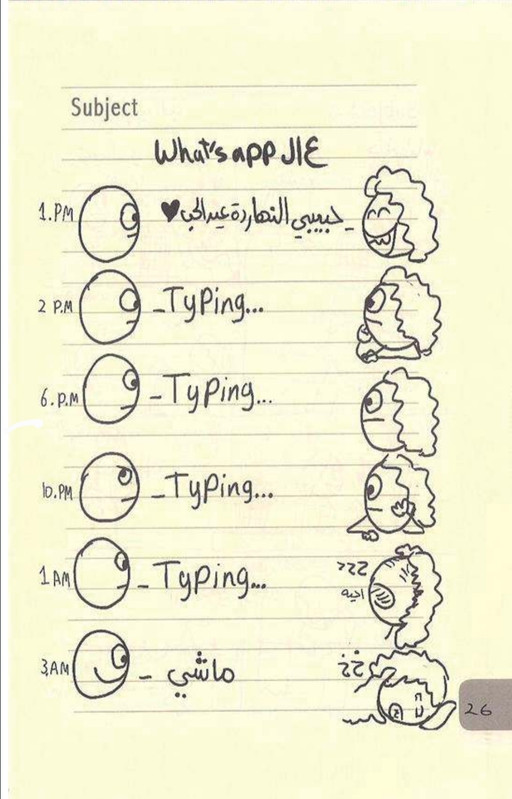 Subject
What's app عال
1.PM
حبيبي النهاردة عيد الحب ♥
2 P.M
_Typing...
6.P.M
_Typing...
10.PM
_Typing...
1 AM
_Typing...
zzz
احيه
3.AM
_ ماشي
خخ
26